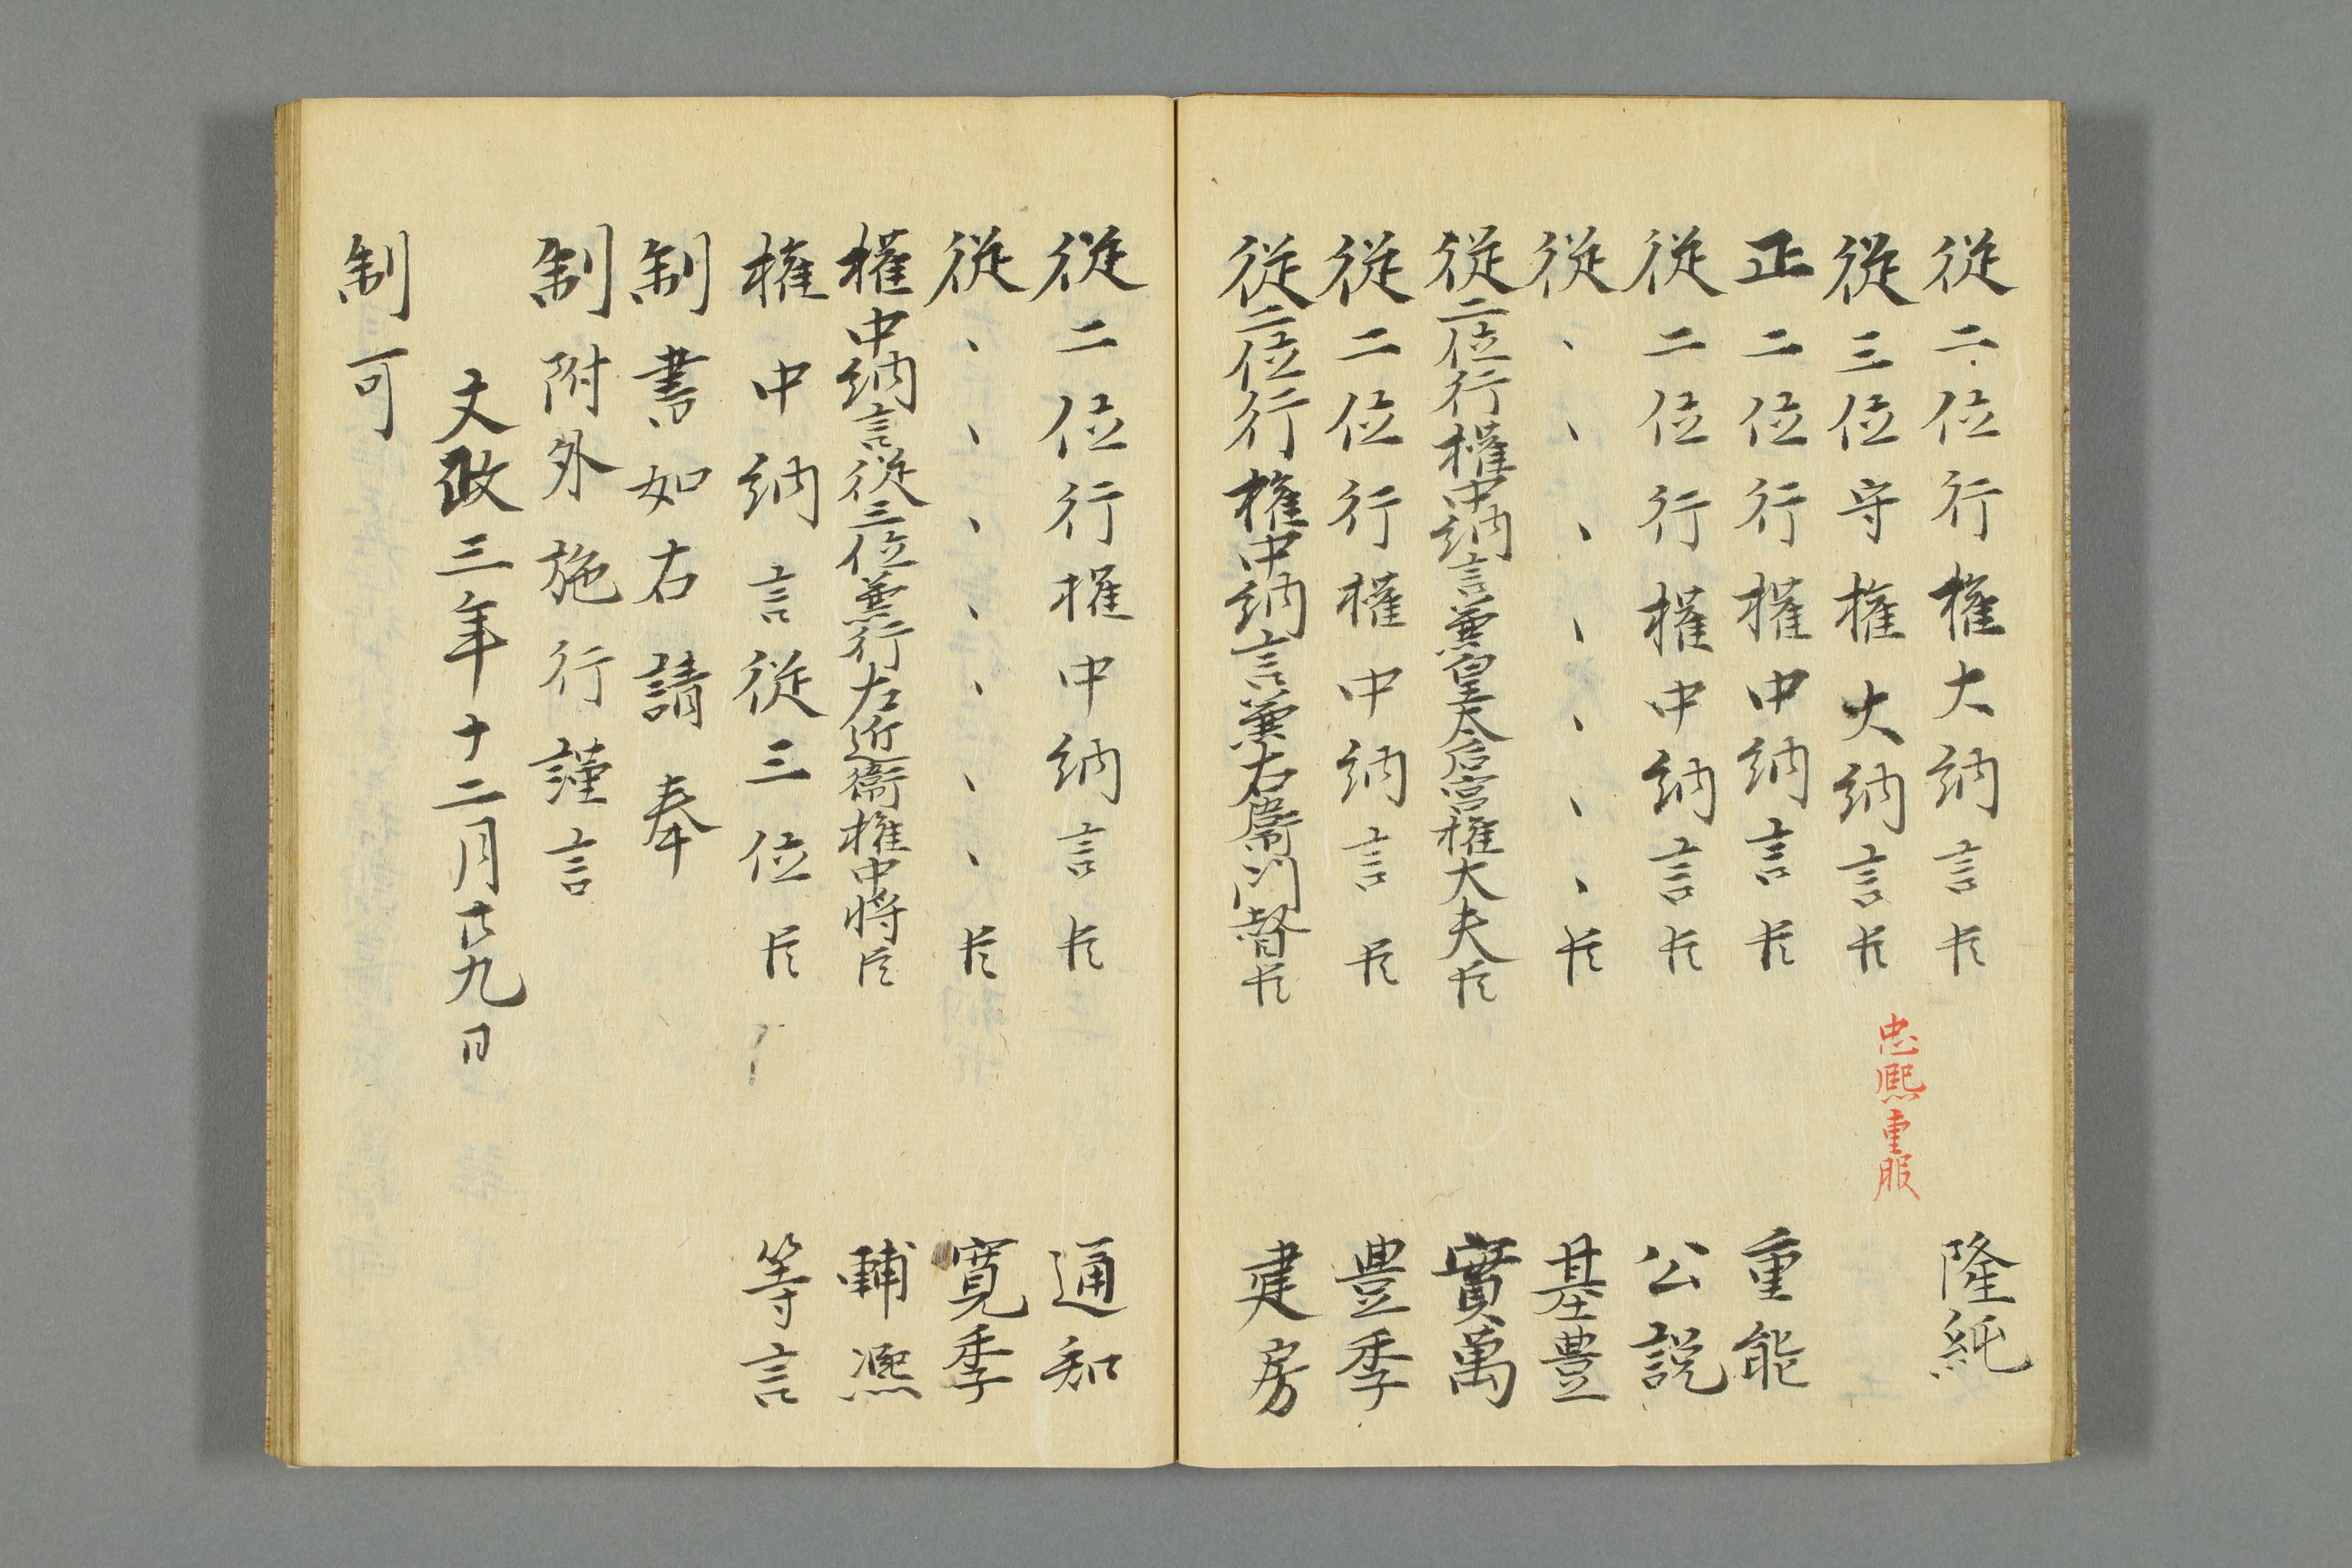 従二位行権大納言臣 隆純
従三位守権大納言臣 忠熈重服
正二位行権中納言臣 重能
従二位行権中納言臣 公説
従、、、、、、、臣 基豊
従二位行権中納言兼皇太后宮権大夫臣 實萬
従二位行権中納言臣 豊季
従二位行権中納言兼右衛門督臣 建房
従二位行権中納言臣 通知
従、、、、、、、臣 寛季
権中納言従三位兼行左近衛権中将臣 輔凞
権中納言従三位臣 等言
制書如右請奉
制附外施行謹言
文政三年十二月廿九日
制可